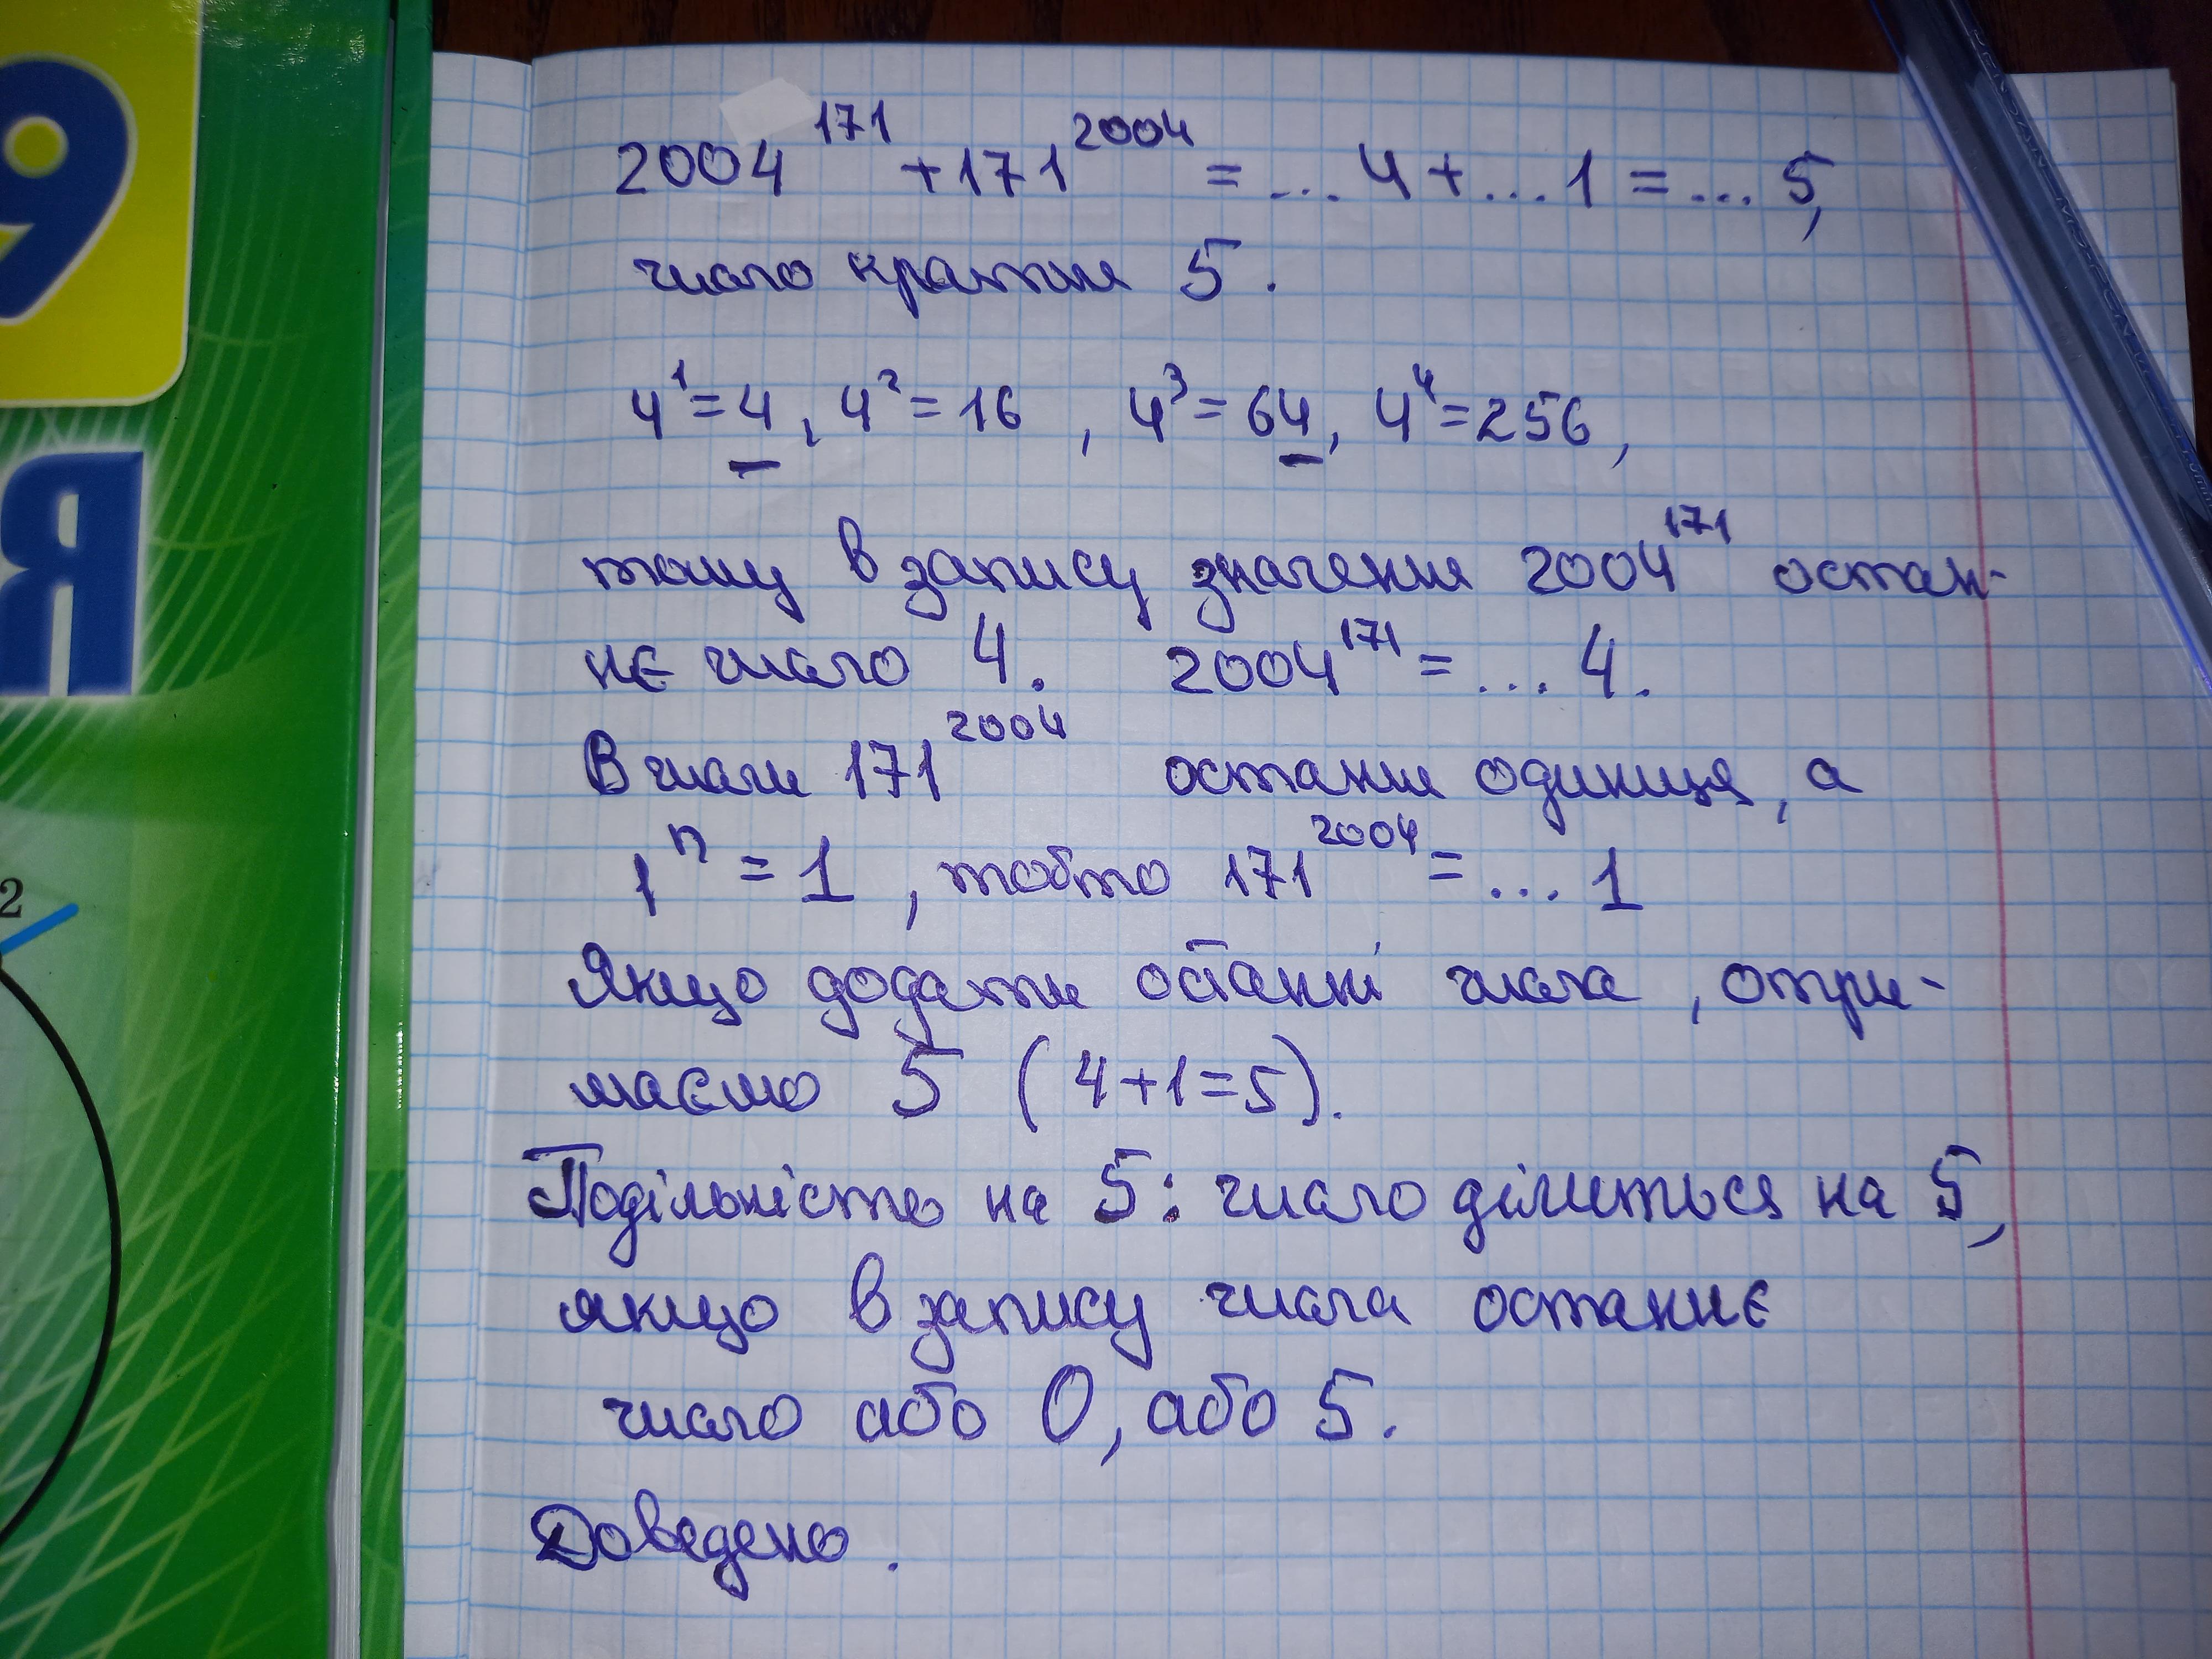 9
Я
2
2004^171 + 171^2004 = ... 4 + ... 1 = ... 5,
число кратне 5.
4^1 = 4, 4^2 = 16, 4^3 = 64, 4^4 = 256,
тому в запису значення 2004^171 остан-
нє число 4. 2004^171 = ... 4.
В числі 171^2004 остання одиниця, а
1^n = 1, тобто 171^2004 = ... 1
Якщо додати останні числа, отри-
маємо 5 (4+1=5).
Подільність на 5: число ділиться на 5,
якщо в запису числа останнє
число або 0, або 5.
Доведено.